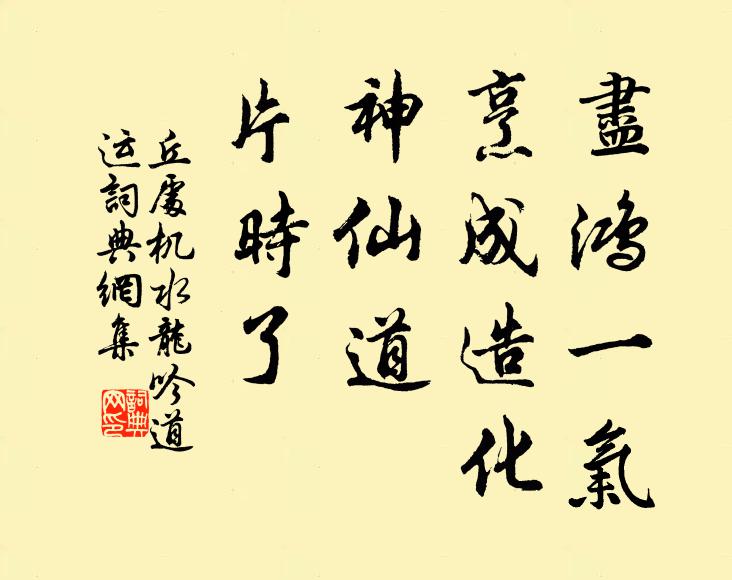 盡鴻一氣
烹成造化
神仙道
片時了
丘處机水龍吟道
运詞典網集
詞典网印